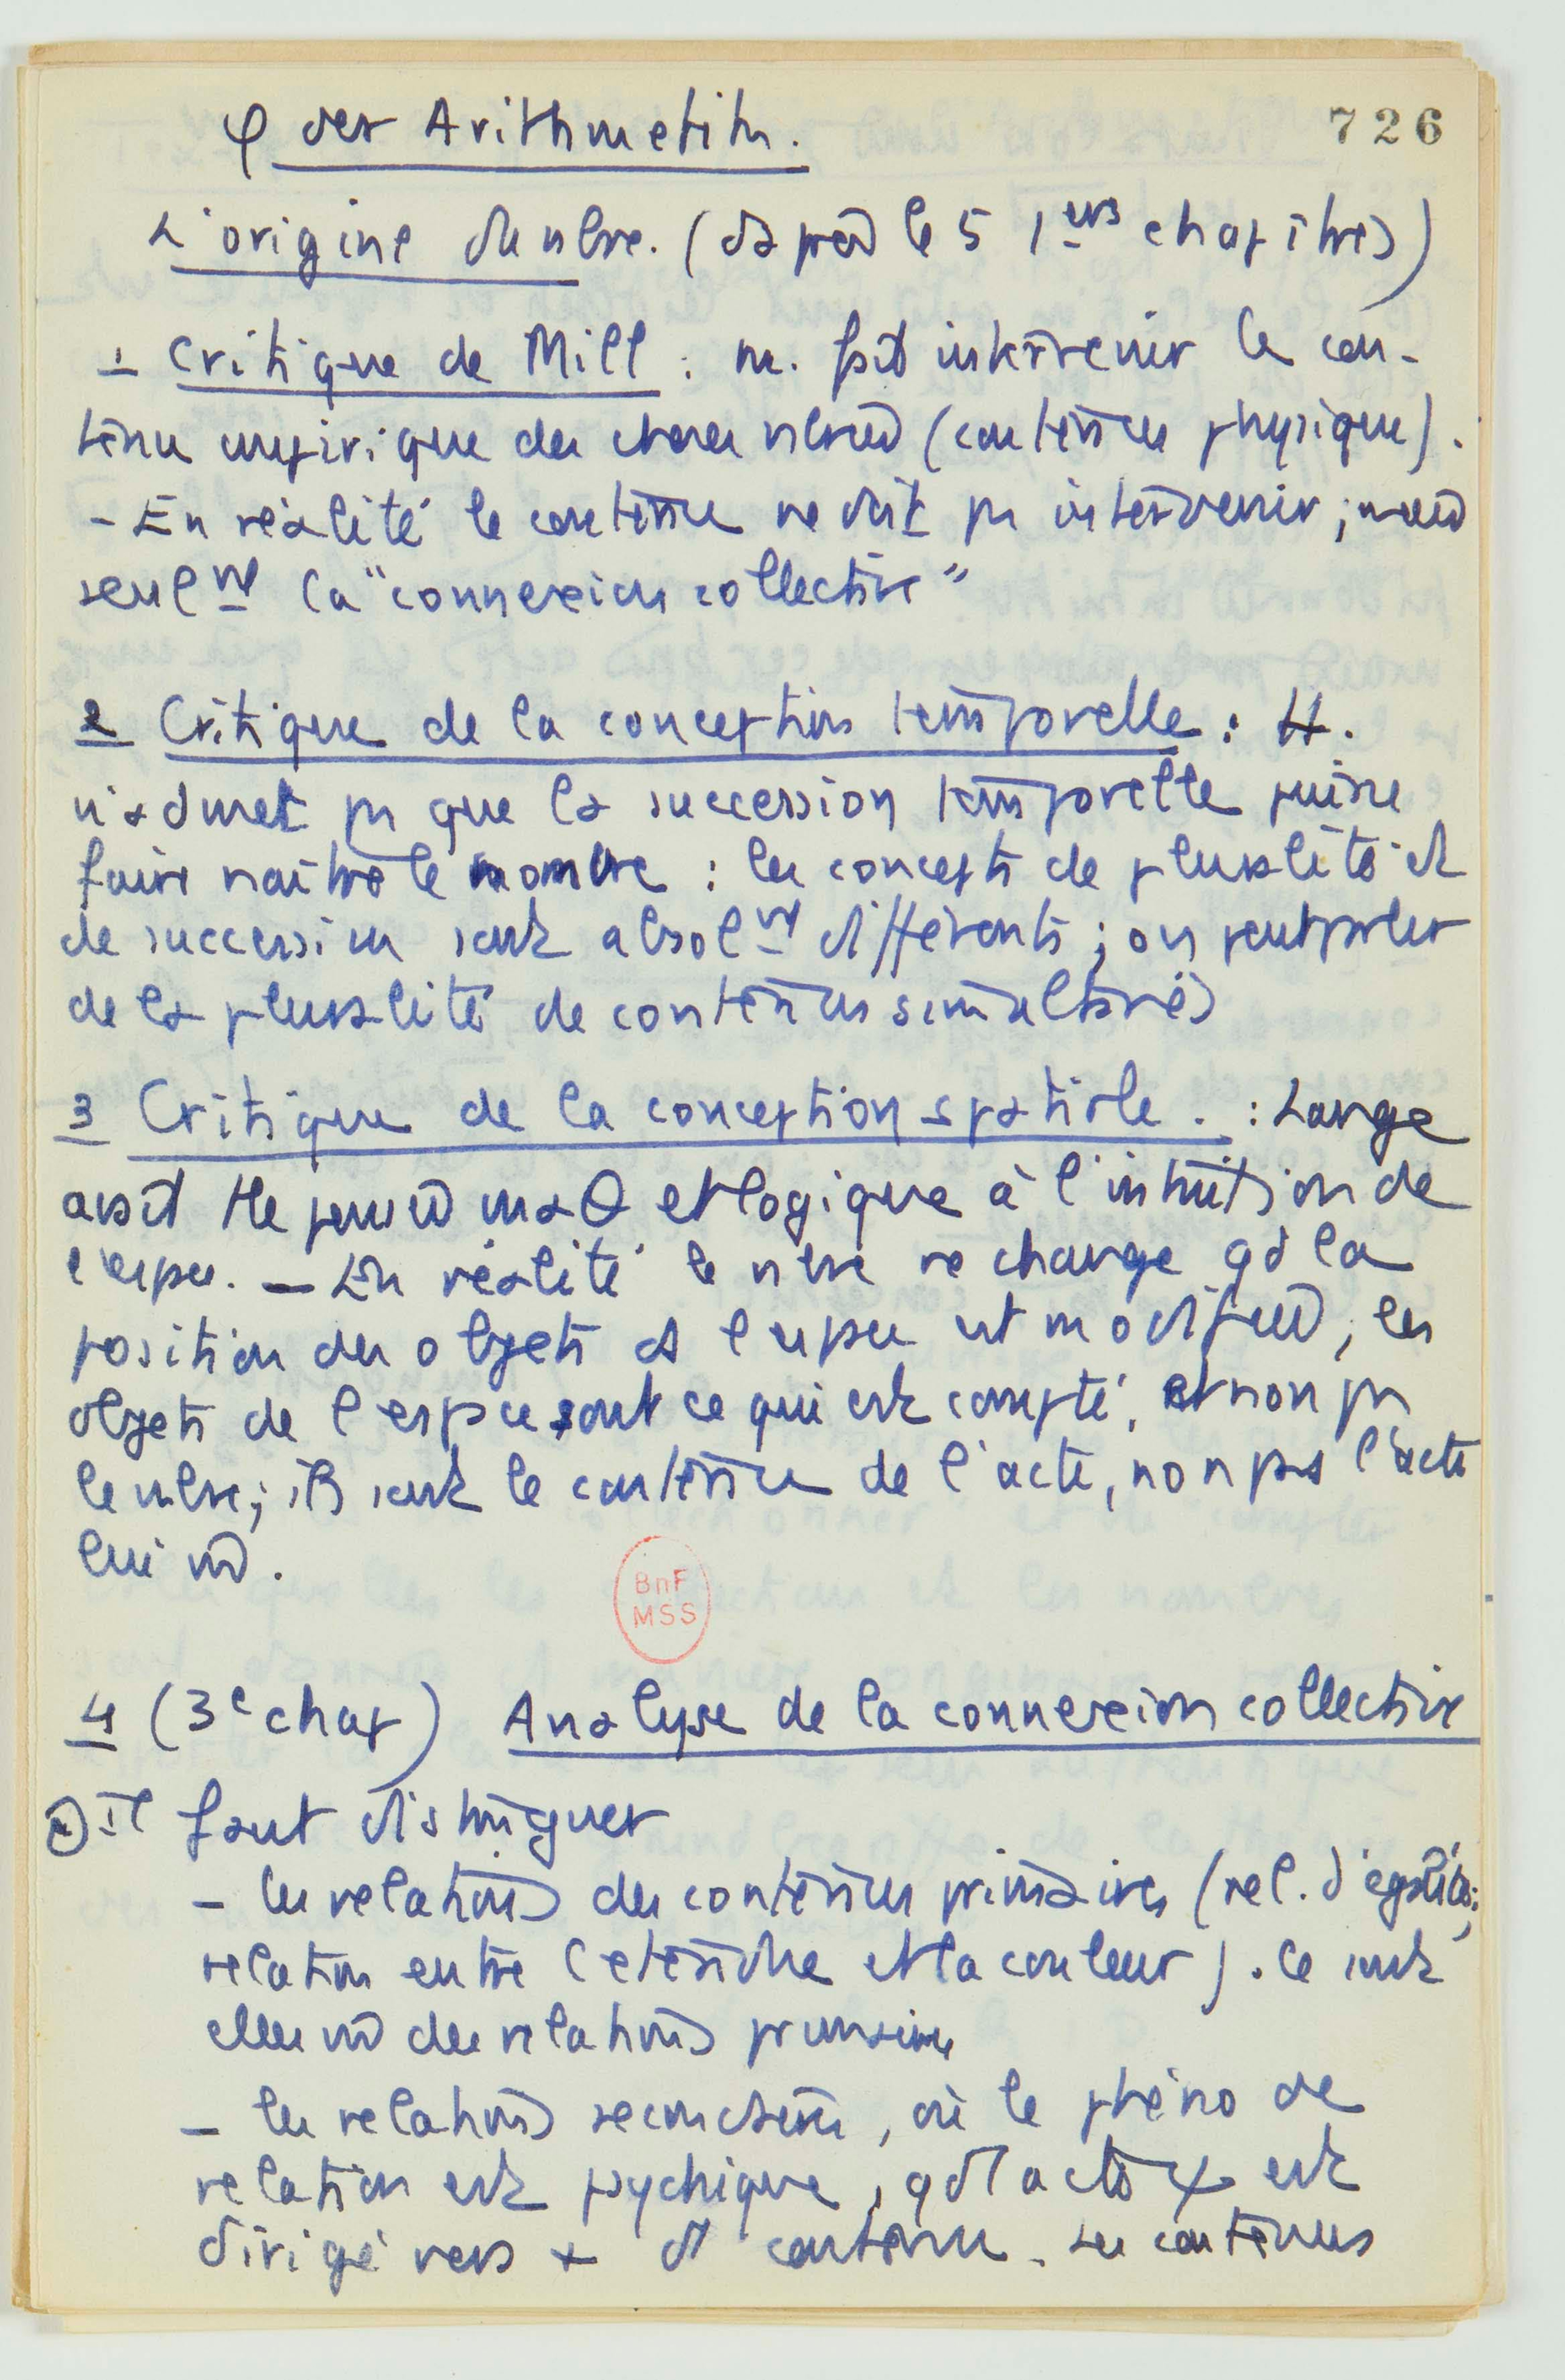 φ der Arithmetik.
726
L'origine du nbre. (d'après les 5 1ers chapitres)
1 Critique de Mill : M. fait intervenir le con-
tenu empirique des choses nbrées (contenu physique).
- En réalité le contenu ne doit pas intervenir ; mais
seulmt la "connexion collective"
2 Critique de la conception temporelle : H.
n'admet pas que la succession temporelle puisse
faire naître le nombre : les concepts de pluralité et
de succession sont absolmt différents ; on peut parler
de la pluralité de contenus simultanés
3 Critique de la conception spatiale. : Lange
avait pensée et logique à l'intuition de
l'espace. — En réalité le nbre ne change qd la
position des objets ds l'espace est modifiée ; les
objets de l'espace sont ce qui est compté, et non pas
le nbre ; ils sont le contenu de l'acte, non pas l'acte
lui m̂.
BnF
MSS
4 (3e chap) Analyse de la connexion collective
a) il faut distinguer
- les relations des contenus primaires (rel. d'égalité ;
relation entre l'étendue et la couleur). Ce sont
elles m̂ des relations primaires
- les relations secondaires, où le phéno de
relation est psychique, qd l'acte ψ est
dirigé vers + ds contenu. Les contenus